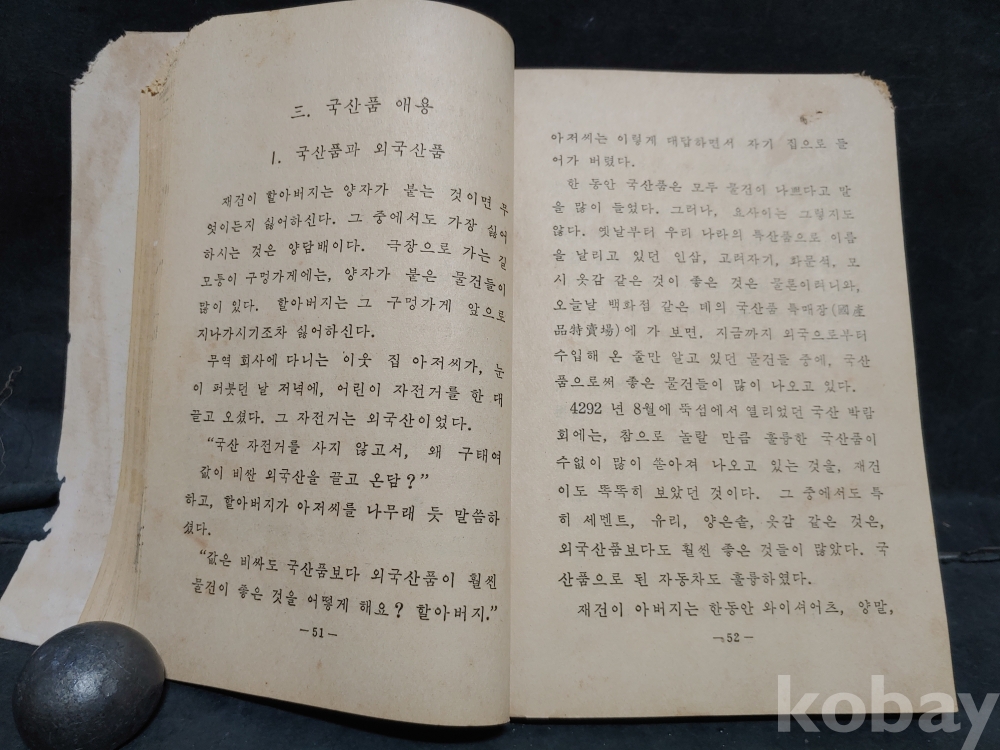 三. 국산품 애용
1. 국산품과 외국산품
재건이 할아버지는 양자가 붙는 것이면 무
엇이든지 싫어하신다. 그 중에서도 가장 싫어
하시는 것은 양담배이다. 극장으로 가는 길
모퉁이 구멍가게에는, 양자가 붙은 물건들이
많이 있다. 할아버지는 그 구멍가게 앞으로
지나가시기조차 싫어하신다.
무역 회사에 다니는 이웃 집 아저씨가, 눈
이 퍼붓던 날 저녁에, 어린이 자전거를 한 대
끌고 오셨다. 그 자전거는 외국산이었다.
“국산 자전거를 사지 않고서, 왜 구태여
값이 비싼 외국산을 끌고 온담?”
하고, 할아버지가 아저씨를 나무래 듯 말씀하
셨다.
“값은 비싸도 국산품보다 외국산품이 훨씬
물건이 좋은 것을 어떻게 해요? 할아버지.”
—51—
아저씨는 이렇게 대답하면서 자기 집으로 들
어가 버렸다.
한 동안 국산품은 모두 물건이 나쁘다고 말
을 많이 들었다. 그러나, 요사이는 그렇지도
않다. 옛날부터 우리 나라의 특산품으로 이름
을 날리고 있던 인삼, 고려자기, 화문석, 모
시 옷감 같은 것이 좋은 것은 물론이려니와,
오늘날 백화점 같은 데의 국산품 특매장(國產
品特賣場)에 가 보면. 지금까지 외국으로부터
수입해 온 줄만 알고 있던 물건들 중에, 국산
품으로써 좋은 물건들이 많이 나오고 있다.
4292 년 8월에 뚝섬에서 열리었던 국산 박람
회에는, 참으로 놀랄 만큼 훌륭한 국산품이
수없이 많이 쏟아져 나오고 있는 것을, 재건
이도 똑똑히 보았던 것이다. 그 중에서도 특
히 세멘트, 유리, 양은솥, 옷감 같은 것은,
외국산품보다도 훨씬 좋은 것들이 많았다. 국
산품으로 된 자동차도 훌륭하였다.
재건이 아버지는 한동안 와이셔어츠, 양말,
—52—
kobay